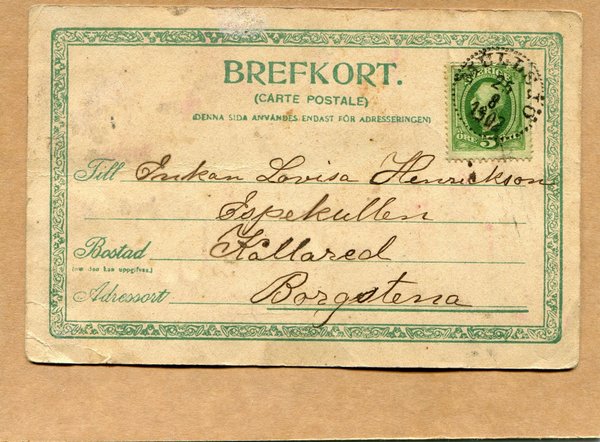 BREFKORT.
(CARTE POSTALE)
(DENNA SIDA ANVÄNDES ENDAST FÖR ADRESSERINGEN)
MULLSJÖ
26
8
1902
5
Till Enkan Lovisa Henrikson
Espekullen
Bostad Källared
(när den kan uppgifvas.)
Adressort Borgstena